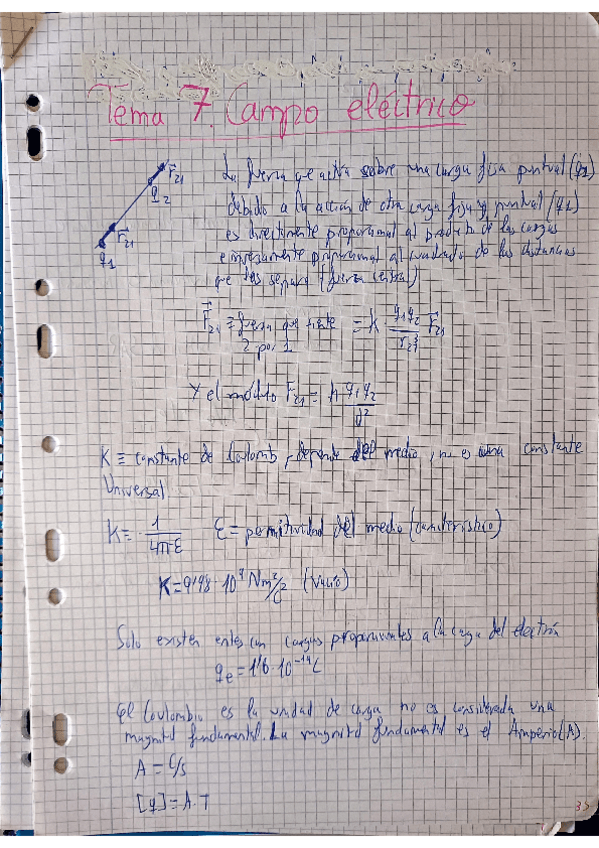 Tema 7. Campo eléctrico
F21
q2
F21
q1
La fuerza que actúa sobre una carga fija puntual (q2)
debido a la acción de otra carga fija y puntual (q1)
es directamente proporcional al producto de las cargas
e inversamente proporcional al cuadrado de las distancias
que las separa (fuerza central)
F21 ≡ fuerza que siente 2 por 1 = K · q1q2
Y el módulo F21 = K q1q2/d²
K ≡ constante de Coulomb, depende del medio, no es una constante
Universal.
K = 1/4πε ε = permitividad del medio (característico)
K = 9'98 · 10⁹ Nm²/C² (Vacío)
Solo existen entes con cargas a la carga del electrón
qe = 1'6 · 10⁻¹⁹ C
El Coulombio es la unidad de carga no es considerada una
magnitd fundamental. La magnitd fundamental es el Amperio (A).
A = C/s
[q] = A · T
35